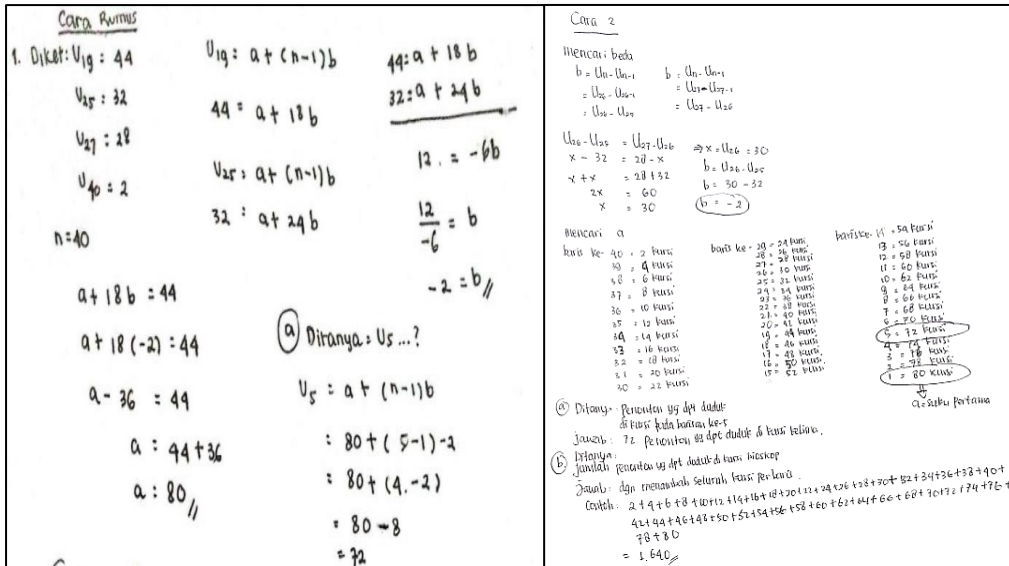 Cara Rumus
1. Diket: U19 = 44
U25 = 32
U27 = 28
U40 = 2
n=40
a + 18b = 44
a + 18 (-2) = 44
a - 36 = 44
a = 44+36
a = 80 //
U19 = a + (n-1) b
44 = a + 18 b
U25 = a + (n-1) b
32 = a + 24 b
44 = a + 18 b
32 = a + 24 b
12 = -6b
12/-6 = b
-2 = b //
a Ditanya = U5 ...?
U5 = a + (n-1) b
= 80 + (5-1) -2
= 80 + (4.-2)
= 80 - 8
= 72
Cara 2
Mencari beda
b = Un - Un-1
= U26 - U26-1
= U26 - U25
b = Un - Un-1
= U27 - U27-1
= U27 - U26
U26 - U25 = U27 - U26
x - 32 = 28 - x
x + x = 28 + 32
2x = 60
x = 30
⇒ x = U26 = 30
b = U26 - U25
b = 30 - 32
b = -2
Mencari a
baris ke- 40 = 2 kursi
39 = 4 kursi
38 = 6 kursi
37 = 8 kursi
36 = 10 kursi
35 = 12 kursi
34 = 14 kursi
33 = 16 kursi
32 = 18 kursi
31 = 20 kursi
30 = 22 kursi
baris ke - 29 = 24 kursi
28 = 26 kursi
27 = 28 kursi
26 = 30 kursi
25 = 32 kursi
24 = 34 kursi
23 = 36 kursi
22 = 38 kursi
21 = 40 kursi
20 = 42 kursi
19 = 44 kursi
18 = 46 kursi
17 = 48 kursi
16 = 50 kursi
15 = 52 kursi
baris ke- 14 = 54 kursi
13 = 56 kursi
12 = 58 kursi
11 = 60 kursi
10 = 62 kursi
9 = 64 kursi
8 = 66 kursi
7 = 68 kursi
6 = 70 kursi
5 = 72 kursi
4 = 74 kursi
3 = 76 kursi
2 = 78 kursi
1 = 80 kursi
a = suku pertama
a Ditanya = penonton yg dpt duduk
di kursi pada barisan ke-5
jawab : 72 penonton yg dpt duduk di kursi kelima.
b. Ditanya :
jumlah penonton yg dpt duduk di kursi bioskop
Jawab : dgn menambah seluruh kursi perbaris.
Contoh : 2+4+6+8+10+12+14+16+18+20+22+24+26+28+30+32+34+36+38+40+
42+44+46+48+50+52+54+56+58+60+62+64+66+68+70+72+74+76+
78+80
= 1.640 //